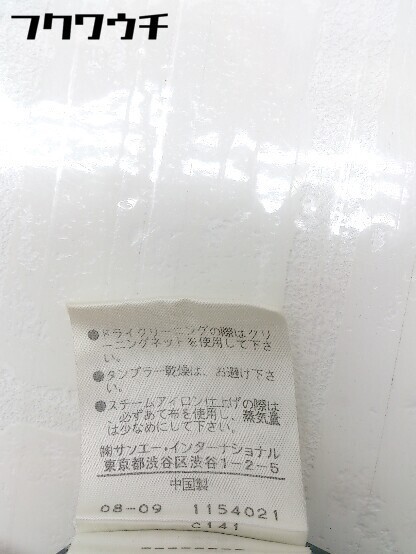 フクワウチ
●ドライクリーニングの際はクリ
ーニングネットを使用して下さ
い。
●タンブラー乾燥は、お避け下さ
い。
●スチームアイロン仕上げの際は
必ずあて布を使用し、蒸気量
は少なめにして下さい。
㈱サンエー・インターナショナル
東京都渋谷区渋谷1-2-5
中国製
08-09 1154021
C141